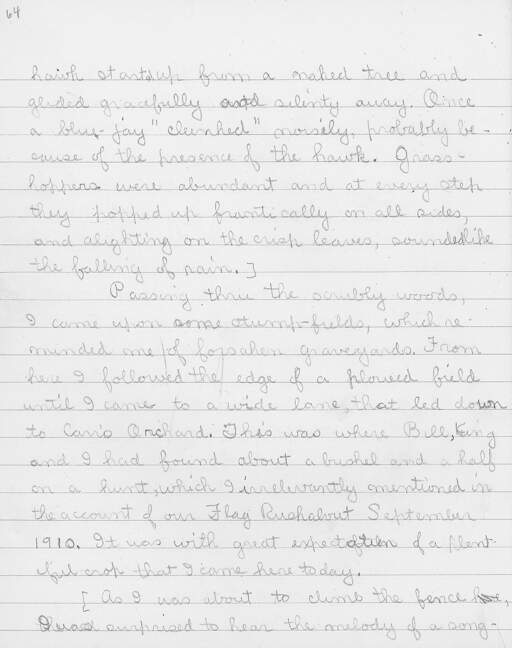 64
hawk started up from a naked tree and
glided gracefully and silently away. Once
a blue-jay "clenked" noisily, probably be-
cause of the presence of the hawk. Grass-
hoppers were abundant and at every step
they popped up frantically on all sides,
and alighting on the crisp leaves, sounded like
the falling of rain.]
Passing thru the scrubly woods,
I came upon some stump-fields, which re-
minded me of forsaken graveyards. From
here I followed the edge of a plowed field
until I came to a wide lane, that led down
to Carr's Orchard. This was where Bill, King
and I had found about a bushel and a half
on a hunt, which I irrelevantly mentioned in
the account of our Flag Rush about September
1910. It was with great expectation of a plent-
iful crop that I came here today.
[As I was about to climb the fence
I was surprised to hear the melody of a song-